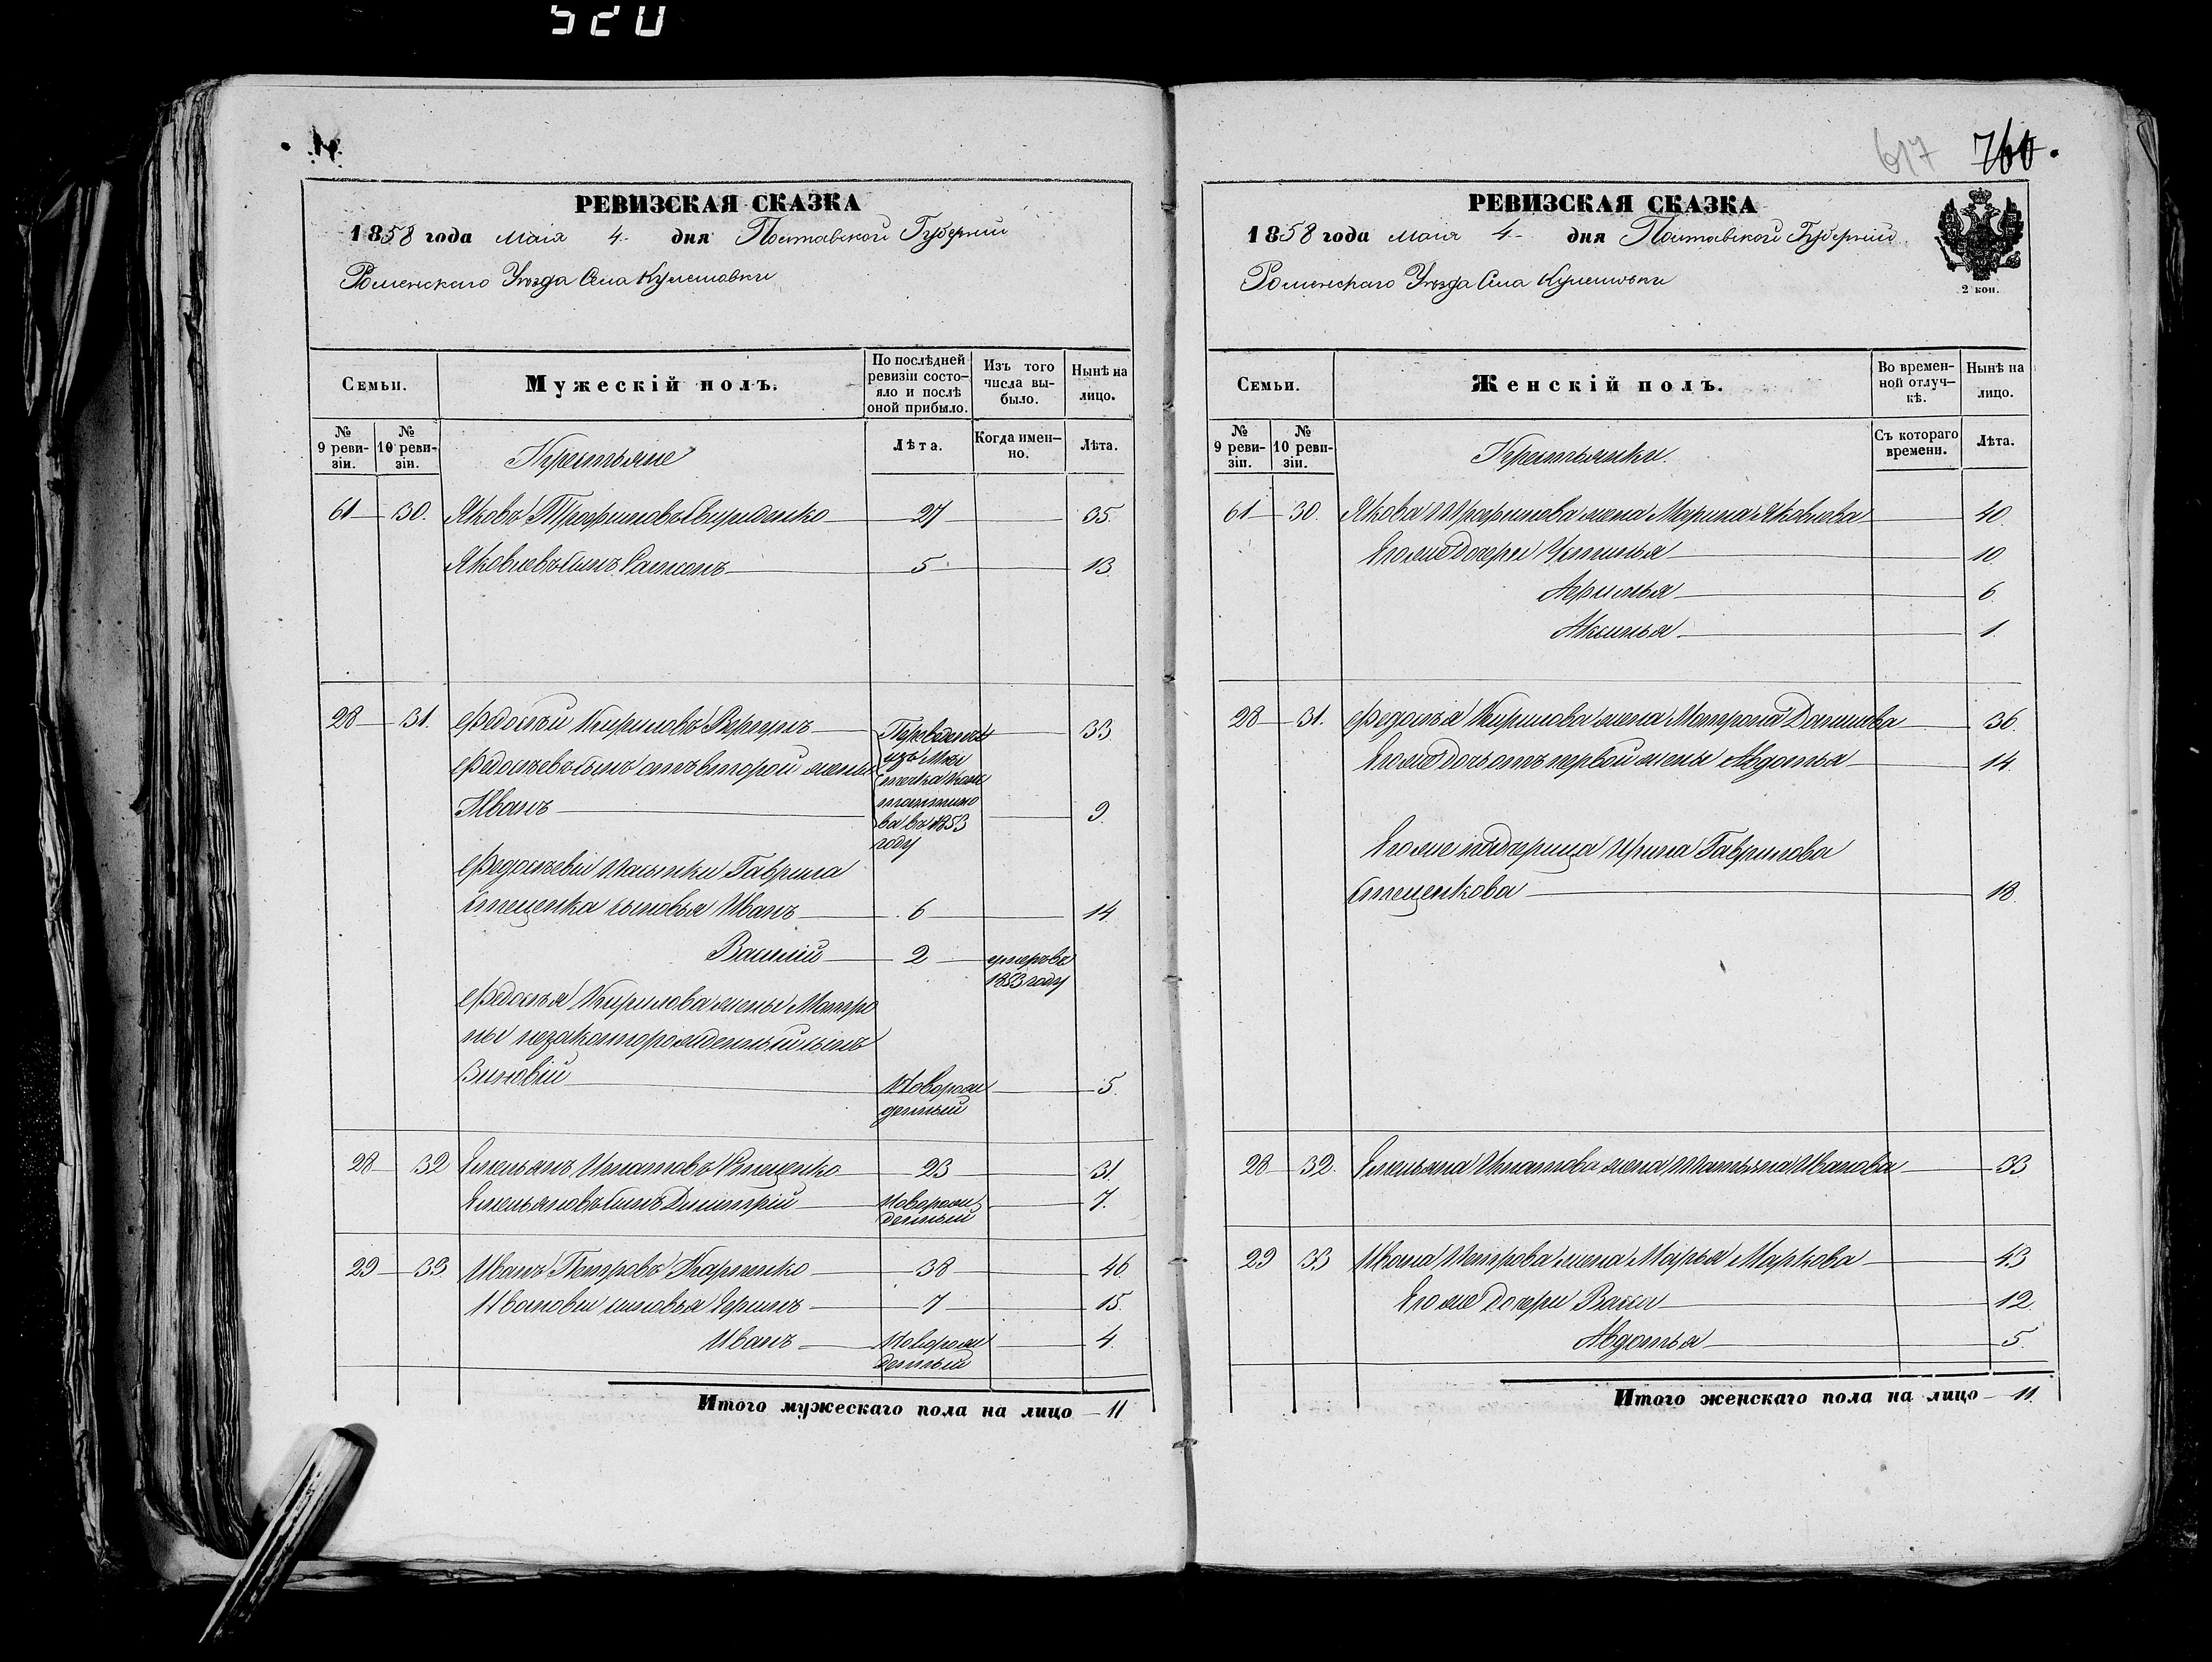 520
РЕВИЗСКАЯ СКАЗКА
1858 года маія 4 дня Полтавской Губерніи
Роменскаго Уѣзда Села Кулешовки
Семьи.
Мужескій полъ.
По послѣдней ревизіи состояло и послѣ оной прибыло.
Изъ того числа выбыло.
Нынѣ на лицо.
№ 9 ревизіи.
№ 10 ревизіи.
Крестьяне
Лѣта.
Когда именно.
Лѣта.
61 30. Яковъ Трофимовъ Свириденко 27 35.
Яковлевъ сынъ Самсонъ 5 13.
28 31. Федосѣй Кириловъ Вергунъ 33
Переведенъ изъ Мѣстечка Константинова въ 1853 году
Федосѣевъ сынъ отъ второй жены
Иванъ 9.
Федосѣевы пасынки Гаврила
Стеценка сыновья Иванъ 6 14
Василій 2 умеръ въ 1853 году
Федосѣя Кирилова жены Матро
ны незаконнорожденный сынъ
Зиновій Новорожденный 5.
28 32 Емельянъ Игнатовъ Стеценко 23 31.
Емельяновъ сынъ Димитрій Новорожденный 7.
29 33. Иванъ Петровъ Карпенко 38 46.
Ивановы сыновья Ефимъ 7 15.
Иванъ Новорожденный 4.
Итого мужескаго пола на лицо 11
617 760.
РЕВИЗСКАЯ СКАЗКА
1858 года маія 4 дня Полтавской Губерніи
Роменскаго Уѣзда Села Кулешовки
2 коп.
Семьи.
Женскій полъ.
Во временной отлучкѣ.
Нынѣ на лицо.
№ 9 ревизіи.
№ 10 ревизіи.
Крестьянки.
Съ котораго времени.
Лѣта.
61 30. Якова Трофимова жена Марина Яковлева 40.
Его же дочери Устинья 10.
6.
Аксинья 1.
28 31. Федосѣя Кирилова жена Матрона Данилова 36.
Его же дочь отъ первой жены Авдотья 14.
Его же падчерица Ирина Гаврилова
Стеценкова 18.
28 32. Емельяна Игнатова жена Татьяна Иванова 33
29 33 Ивана Петрова жена Марья Маркова 43
Его же дочери Васса 12.
Авдотья 5.
Итого женскаго пола на лицо 11.